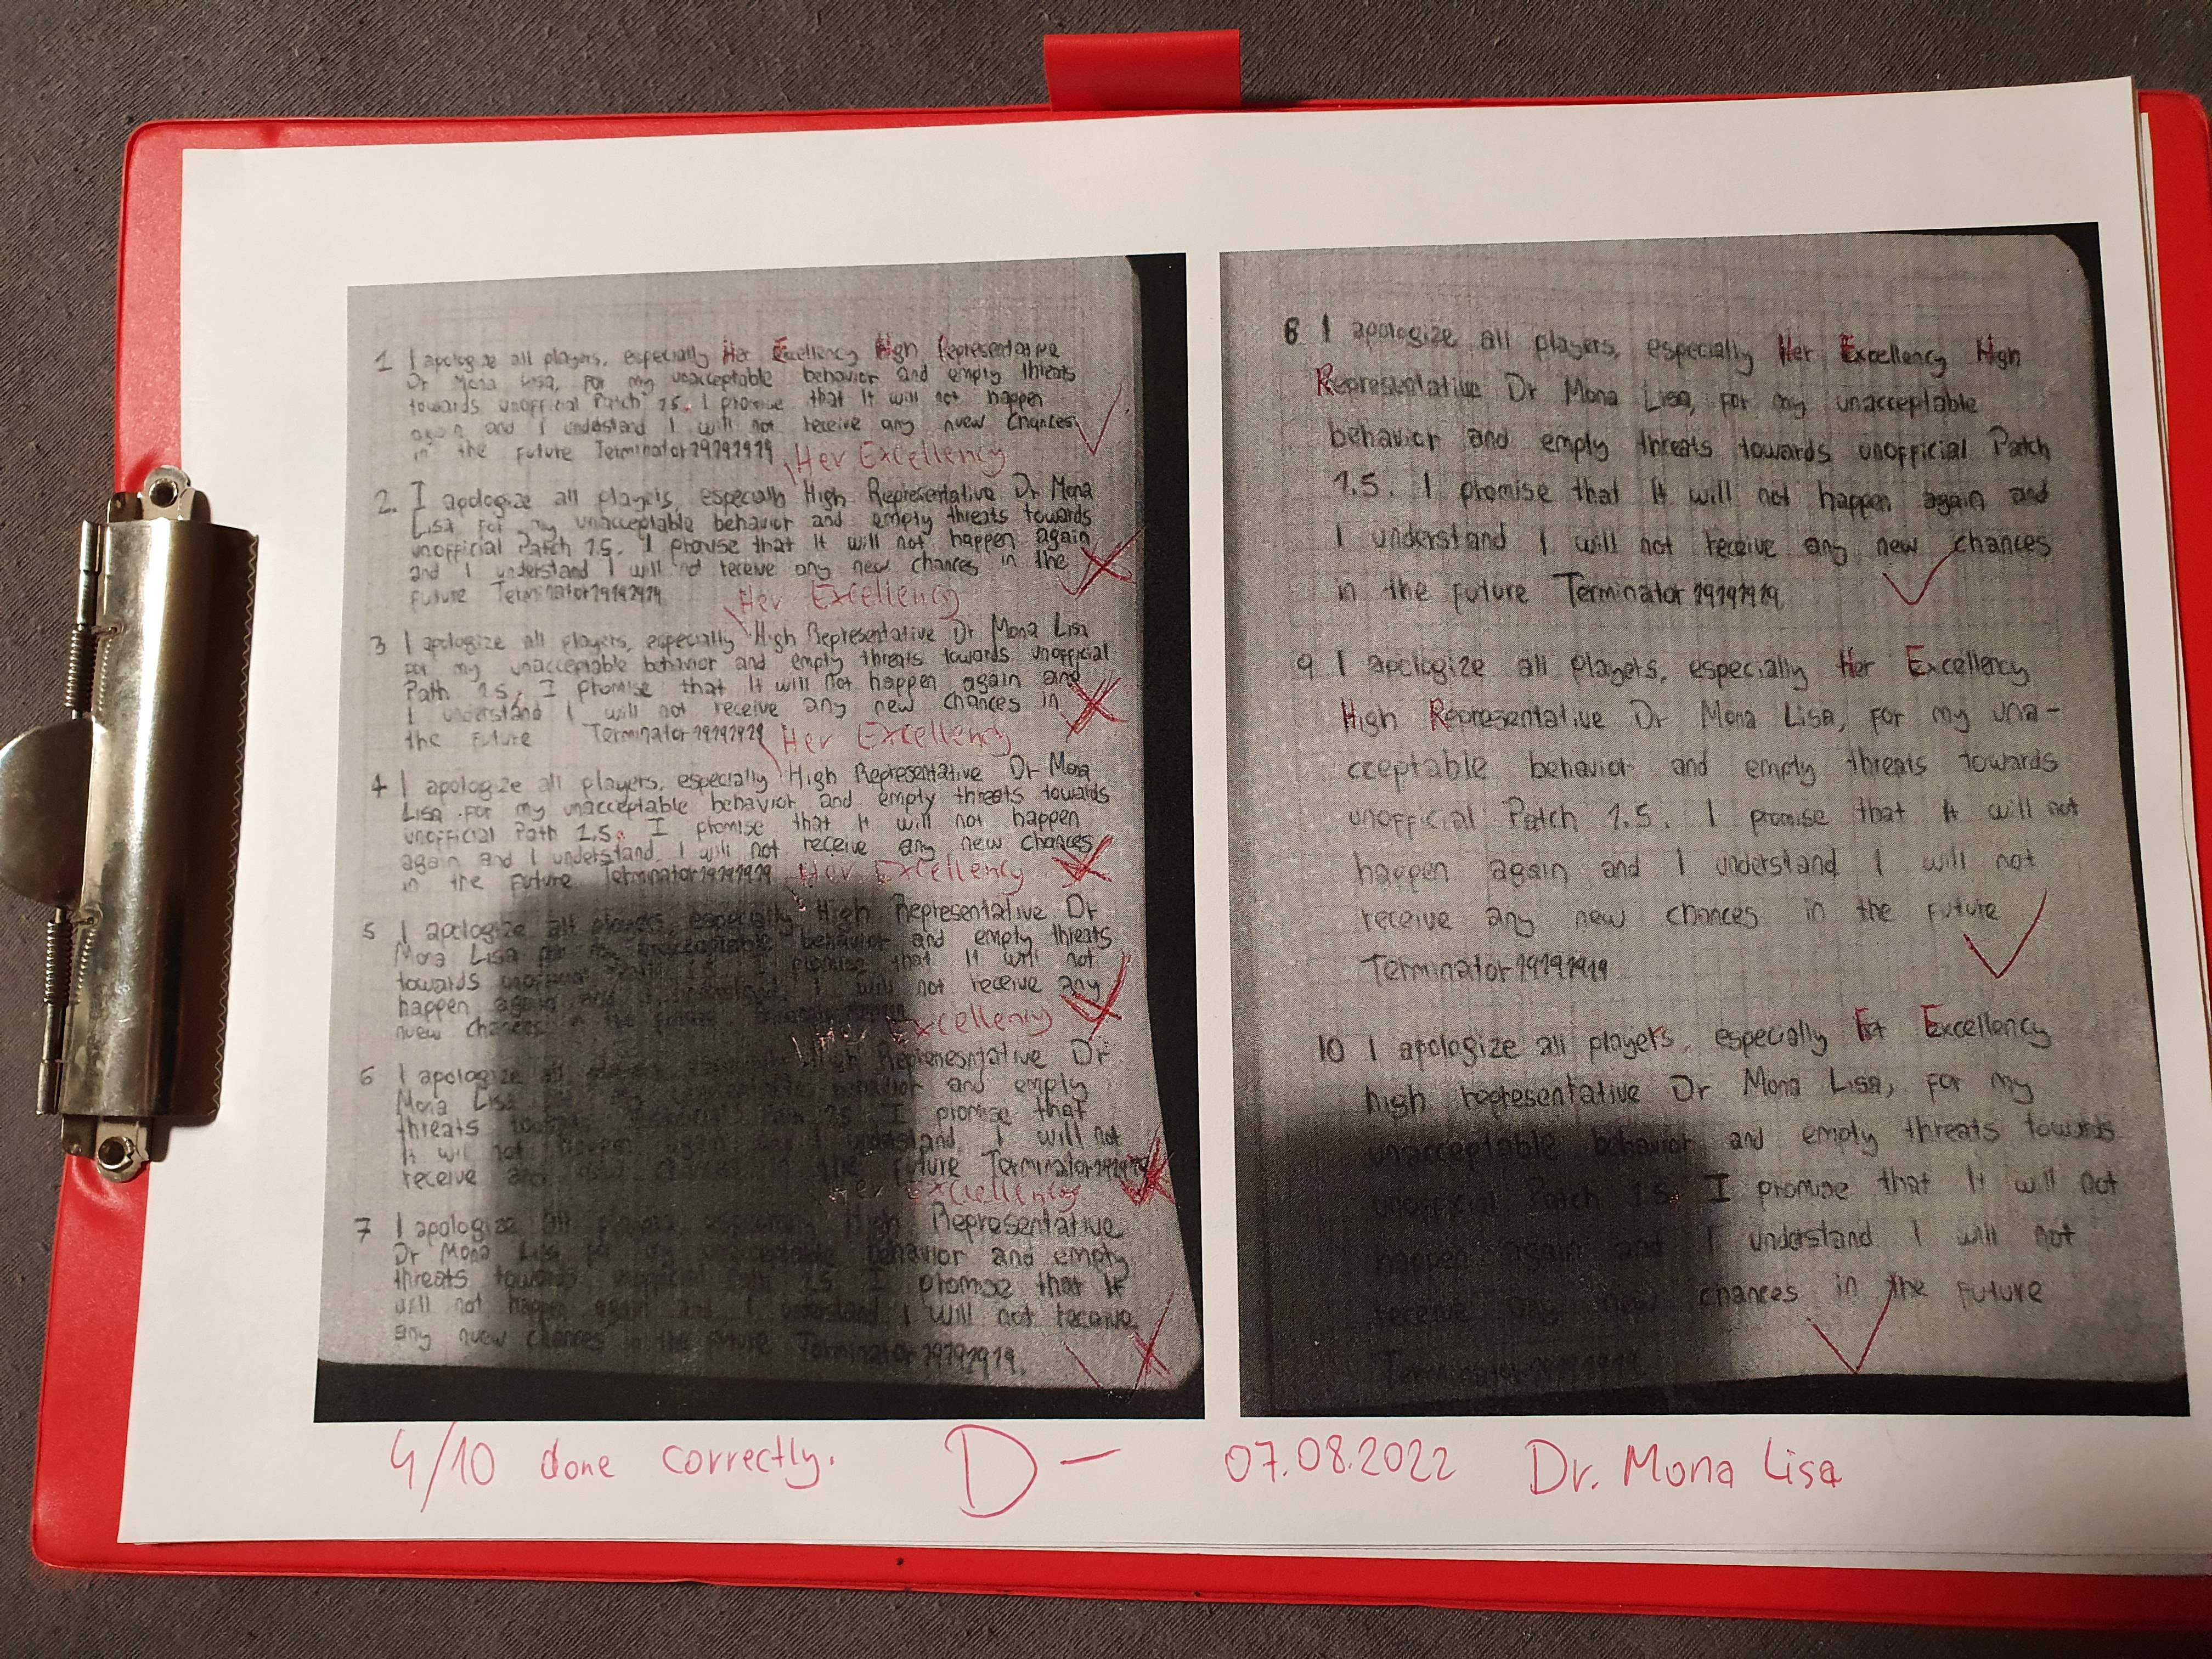 1 I apologize all players, especially Her Excellency High Representative
Dr Mona Lisa, for my unacceptable behavior and empty threats
towards unofficial Patch 1.5. I promise that It will not happen
again and I undestand I will not receive any nuew chances
in the future Terminator19191919
Her Excellency
2. I apologize all players, especially High Representative Dr Mona
Lisa for my unacceptable behavior and empty threats towards
unofficial Patch 1.5. I promise that It will not happen again
and I understand I will not receive any new chances in the
future Terminator19191919
Her Excellency
3 I apologize all players, especially High Representative Dr Mona Lisa
for my unacceptable behavior and empty threats towards unofficial
Path 1.5. I promise that It will not happen again and
I understand I will not receive any new chances in
the future Terminator19191919
Her Excellency
4 I apologize all players, especially High Representative Dr Mona
Lisa for my unacceptable behavior and empty threats towards
unofficial Path 1.5. I promise that It will not happen
again and I understand I will not receive any new chances
in the future Terminator19191919
Her Excellency
5 I apologize all players, especially High Representative Dr
Mona Lisa for my unacceptable behavior and empty threats
towards unofficial 1.5 I promise that It will not
happen again and I I will not receive any
nuew chances in the future
Her Excellency
6 I apologize all High Represesntative Dr
Mona Lisa behavior and empty
threats 1.5 I promise that
It will not happen again undestand I will not
receive any future Terminator19191919
Her Excellency
7 I apologize all players especially High Representative
Dr Mona Lisa for my unacceptable behavior and empty
threats towards unofficial 1.5 I promise that It
will not happen again and I undestand I will not receive
any nuew chances in the future Terminator19191919.
8 I apologize all players, especially Her Excellency High
Representative Dr Mona Lisa, for my unacceptable
behavior and empty threats towards unofficial Patch
1.5. I promise that It will not happen again and
I understand I will not receive any new chances
in the future Terminator19191919
9 I apologize all players, especially Her Excellency
High Representative Dr Mona Lisa, for my una-
cceptable behavior and empty threats towards
unofficial Patch 1.5. I promise that It will not
happen again and I understand I will not
receive any new chances in the future
Terminator19191919
10 I apologize all players, especially Excellency
high representative Dr Mona Lisa, for my
unacceptable behavior and empty threats towards
unofficial Patch 1.5. I promise that It will not
happen again and I undestand I will not
receive any new chances in the future
Terminator19191919
4/10 done correctly. D- 07.08.2022 Dr. Mona Lisa